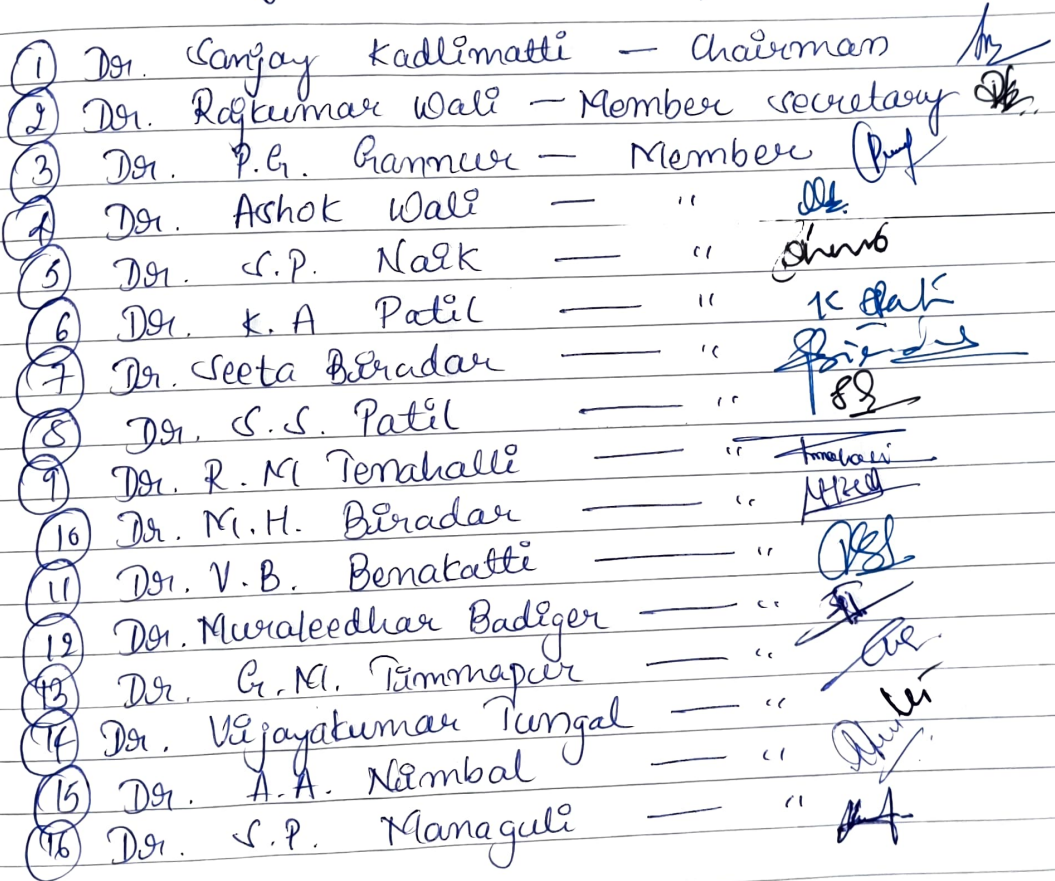 1 Dr. Sanjay Kadlimatti — Chairman
2 Dr. Rajkumar Wali — Member secretary
3 Dr. P.G. Gannur — Member
4 Dr. Ashok Wali — "
5 Dr. S.P. Naik — "
6 Dr. K. A Patil — "
7 Dr. Seeta Biradar — "
8 Dr. S.S. Patil — "
9 Dr. R. M Tenahalli — "
10 Dr. M.H. Biradar — "
11 Dr. V.B. Benakatti — "
12 Dr. Muraleedhar Badiger — "
13 Dr. G.M. Timmapur — "
14 Dr. Vijayakumar Tungal — "
15 Dr. A.A. Nimbal — "
16 Dr. S.P. Managuli — "